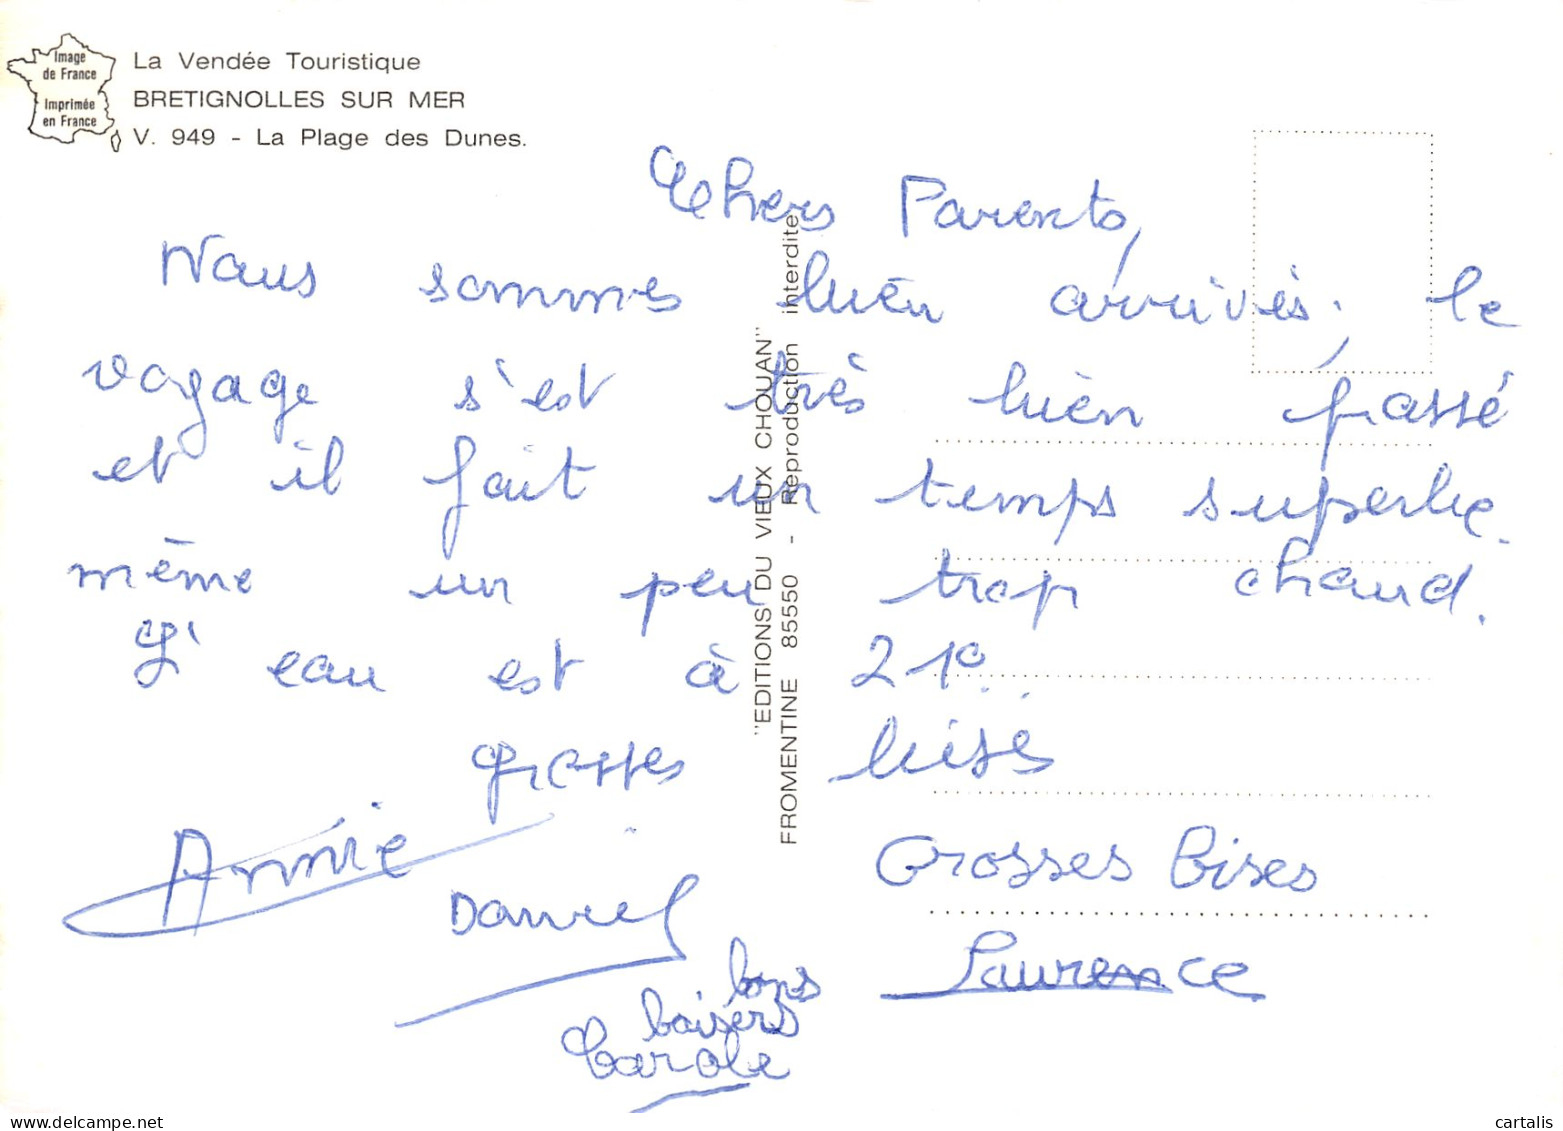 Image
de France
Imprimée
en France
La Vendée Touristique
BRETIGNOLLES SUR MER
V. 949 - La Plage des Dunes.
"EDITIONS DU VIEUX CHOUAN"
FROMENTINE 85550 - Reproduction interdite
Chers Parents,
Nous sommes bien arrivés, le
voyage s'est très bien passé
et il fait un temps superbe.
même un peu trop chaud.
L'eau est à 21°.
grosses bises
Annie
Daniel
Grosses bises
Laurence
bons
baisers
Carole
www.delcampe.net
cartalis